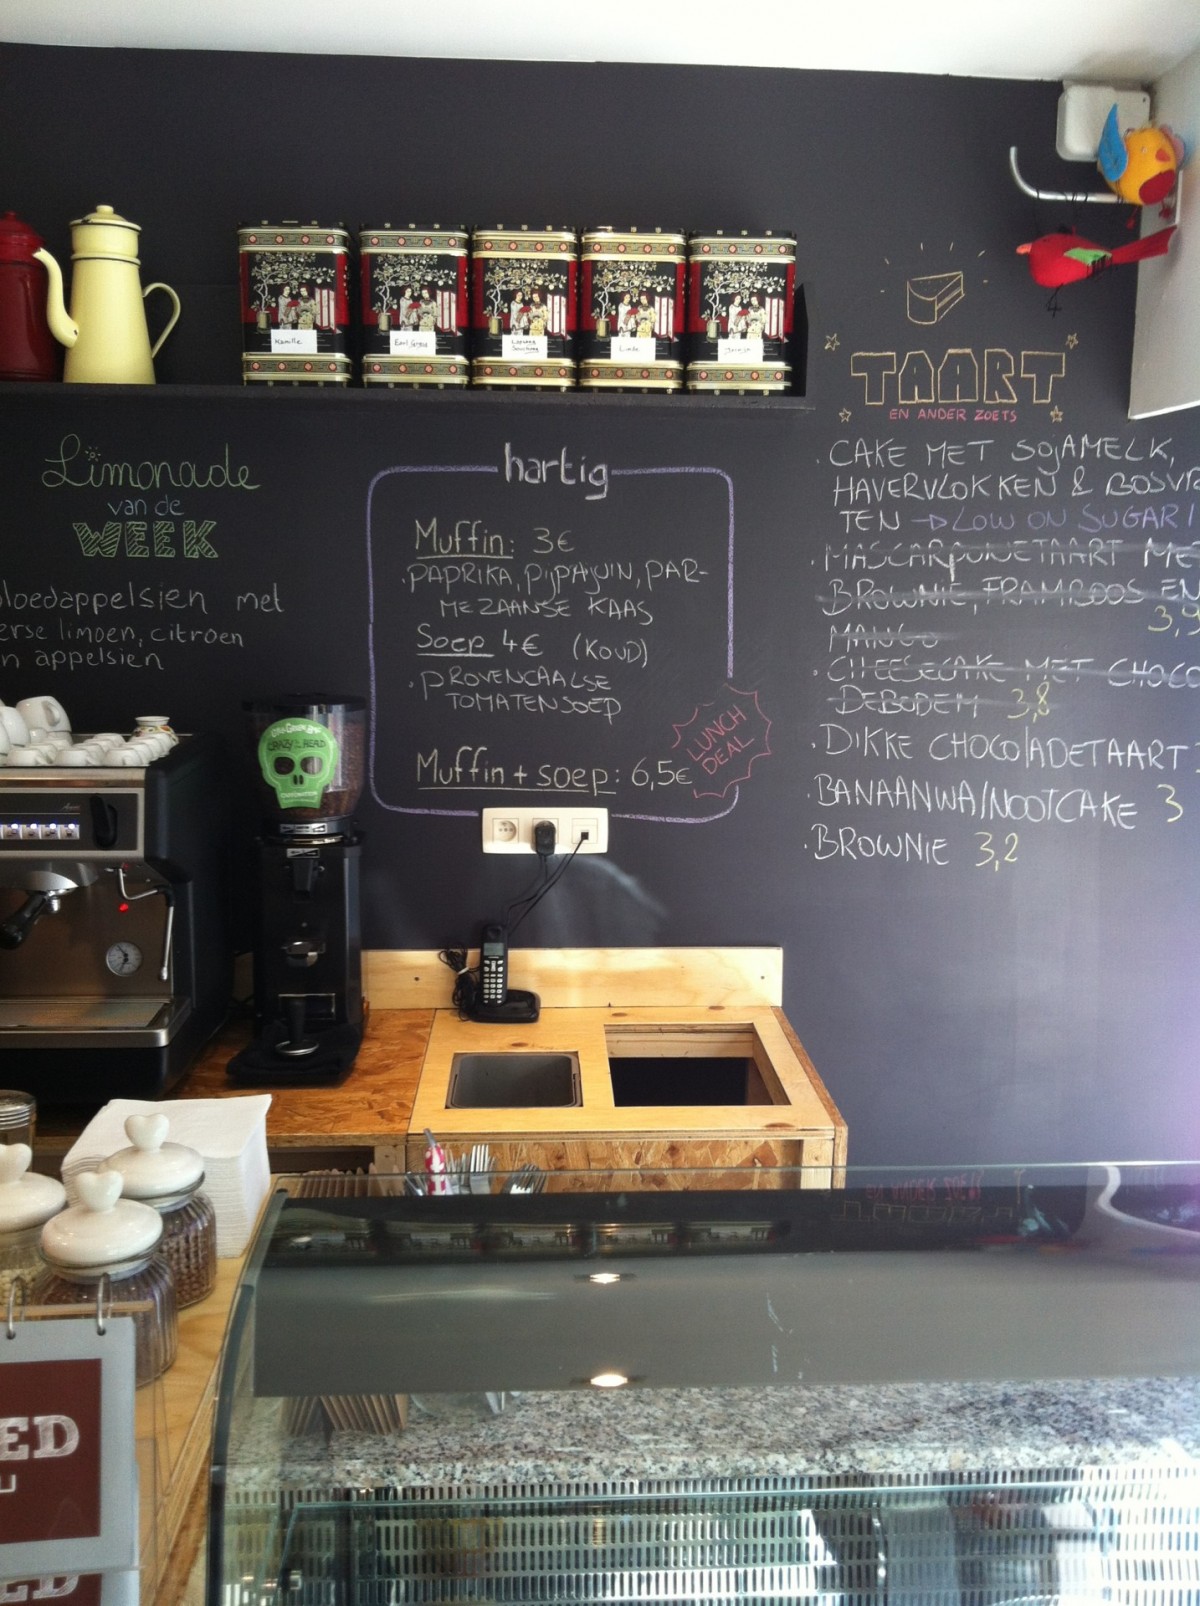 Kamille
Earl Grey
Lapsang
Souchong
Linde
Jasmijn
Limonade
van de
WEEK
bloedappelsien met
verse limoen, citroen
en appelsien
hartig
Muffin: 3€
. PAPRIKA, PIJPAJUIN, PAR-
MEZAANSE KAAS
Soep 4€ (KOUD)
. PROVENCAALSE
TOMATENSOEP
LUNCH
DEAL
Muffin + soep: 6,5€
TAART
EN ANDER ZOETS
. CAKE MET SOJAMELK,
HAVERVLOKKEN & BOSVR
TEN → LOW ON SUGAR!
. MASCARPONETAART ME
BROWNIE, FRAMBOOS EN
MANGO 3,9
. CHEESECAKE MET CHOCO
DEBODEM 3,8
. DIKKE CHOCOLADETAART
. BANAANWALNOOTCAKE 3
. BROWNIE 3,2
CRAZY IN THE HEAD
ED
ED